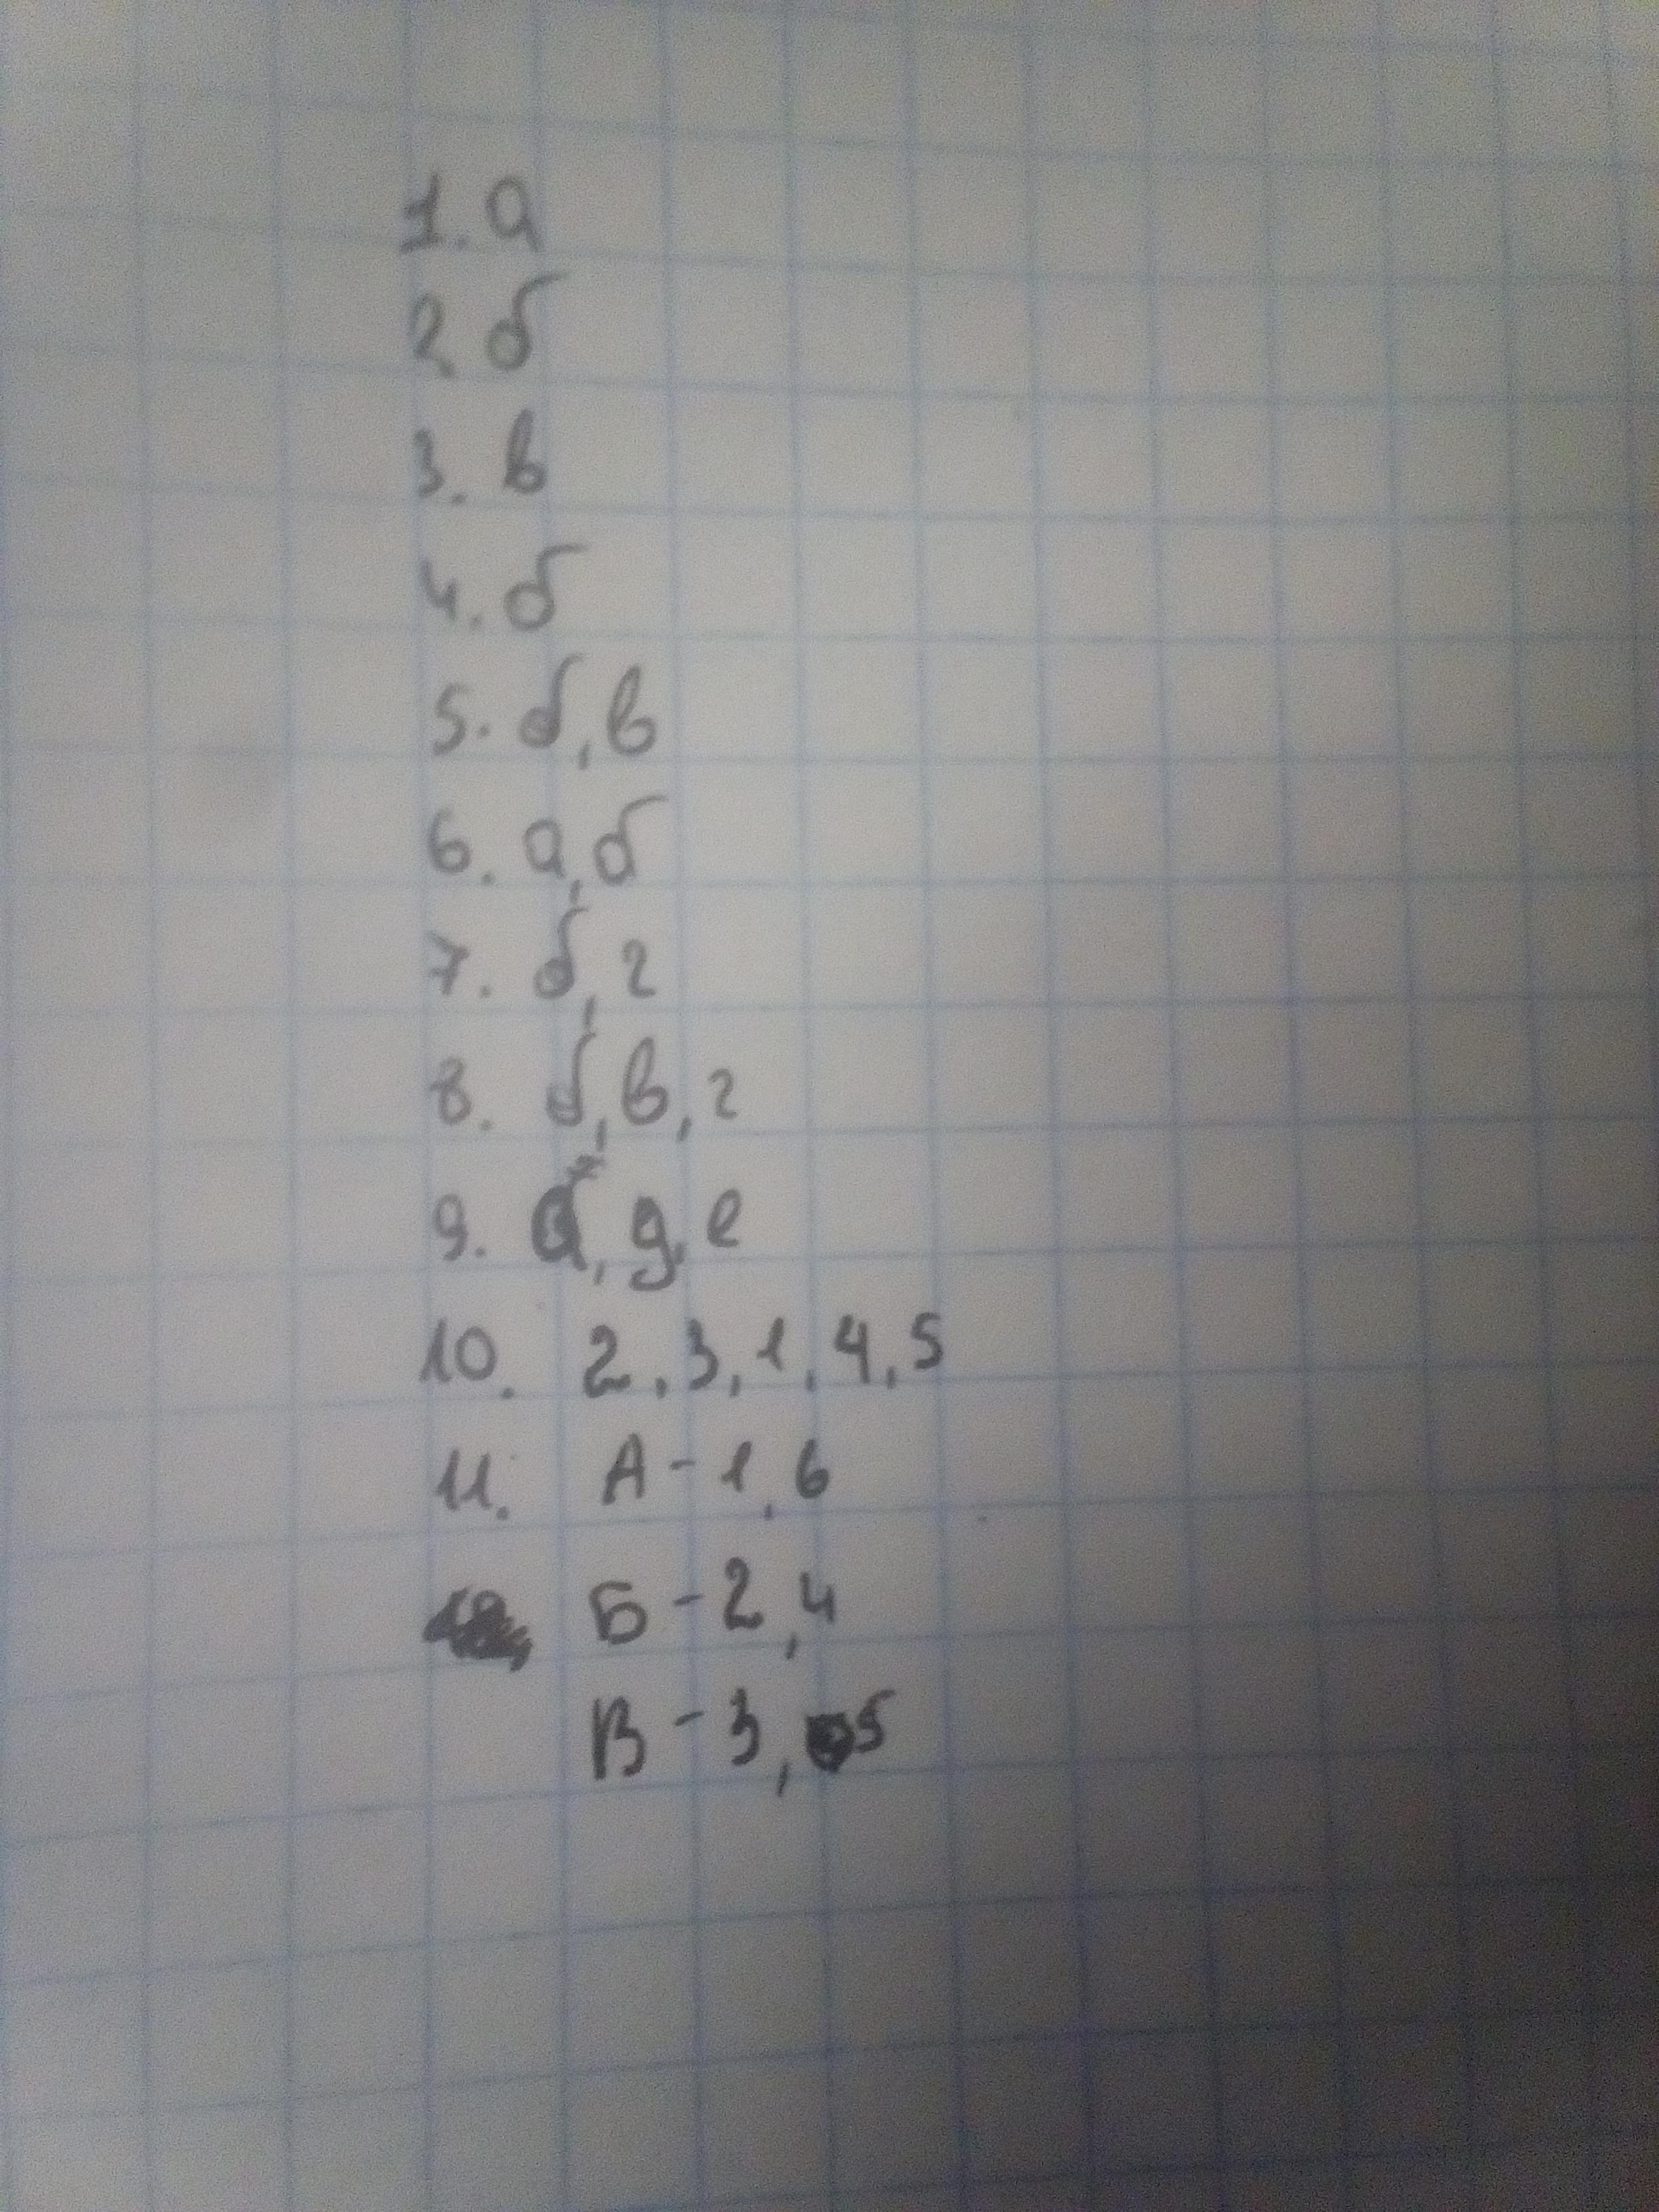 1. а
2. б
3. в
4. б
5. б, в
6. а, б
7. б, г
8. б, в, г
9. а, д, е
10. 2, 3, 1, 4, 5
11. А - 1, 6
Б - 2, 4
В - 3, 5